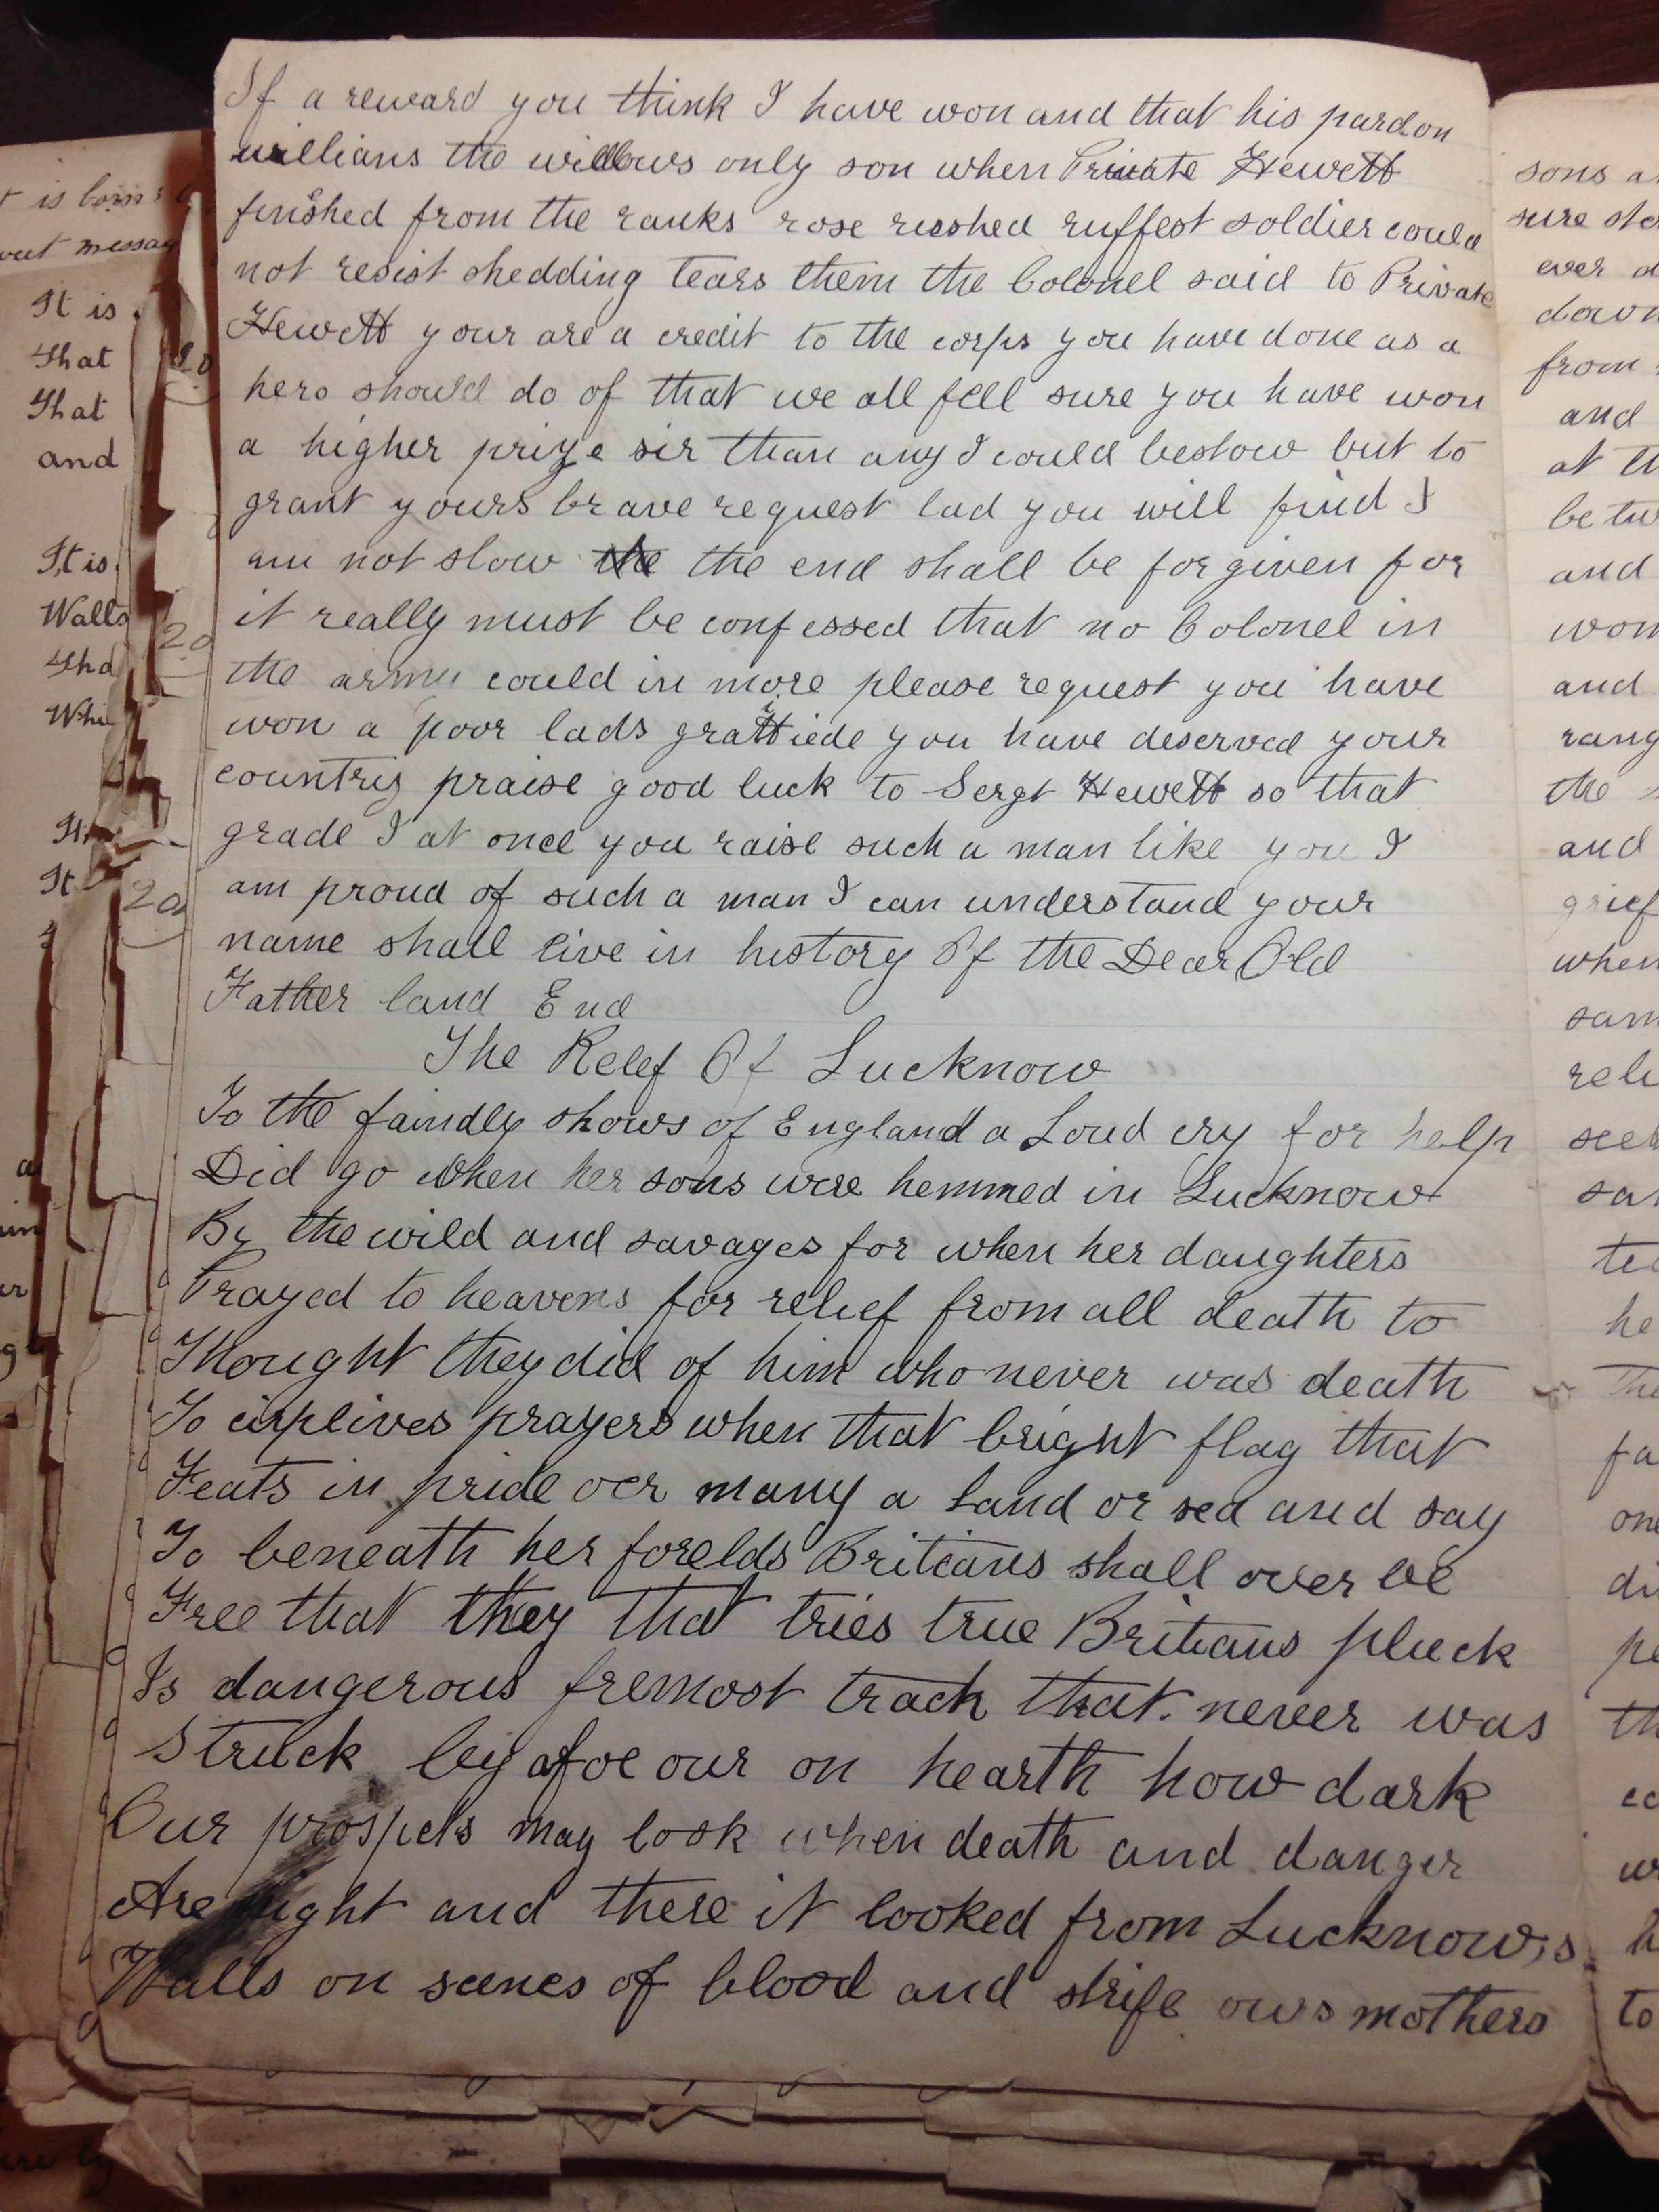 If a reward you think I have won and that his pardon
willians the widows only son when Private Hewett
finished from the ranks rose rushed ruffest soldier could
not resist shedding tears them the Colonel said to Private
Hewett your are a credit to the corps you have done as a
hero should do of that we all fell sure you have won
a higher prize sir than any I could bestow but to
grant yours brave request lad you will find I
am not slow the the end shall be forgiven for
it really must be confessed that no Colonel in
the army could in more please request you have
won a poor lads grattiede you have deserved your
countrys praise good luck to Sergt Hewett so that
grade I at once you raise such a man like you I
am proud of such a man I can understand your
name shall live in history Of the Dear Old
Father land End
The Relef Of Lucknow
To the faindly shows of England a Loud cry for help
Did go when her sons were hemmed in Lucknow
By the wild and savages for when her daughters
Prayed to heavens for relief from all death to
Thought they did of him who never was death
To prayers when that bright flag that
Feats in pride oer many a Land or sea and say
To beneath her forelds Briteans shall over be
Free that they that tries true Britians pluck
Is dangerous fremost track that. never was
Struck by afoe our on hearth how dark
Our prospets may look when death and danger
Are and there it looked from Lucknow,s
Walls on scenes of blood and strife ows mothers
It is
That
That
and
It is
Walls
It
20
20
sons
sure
ever
down
from
and
at
and
and
rang
the
and
grief
when
to